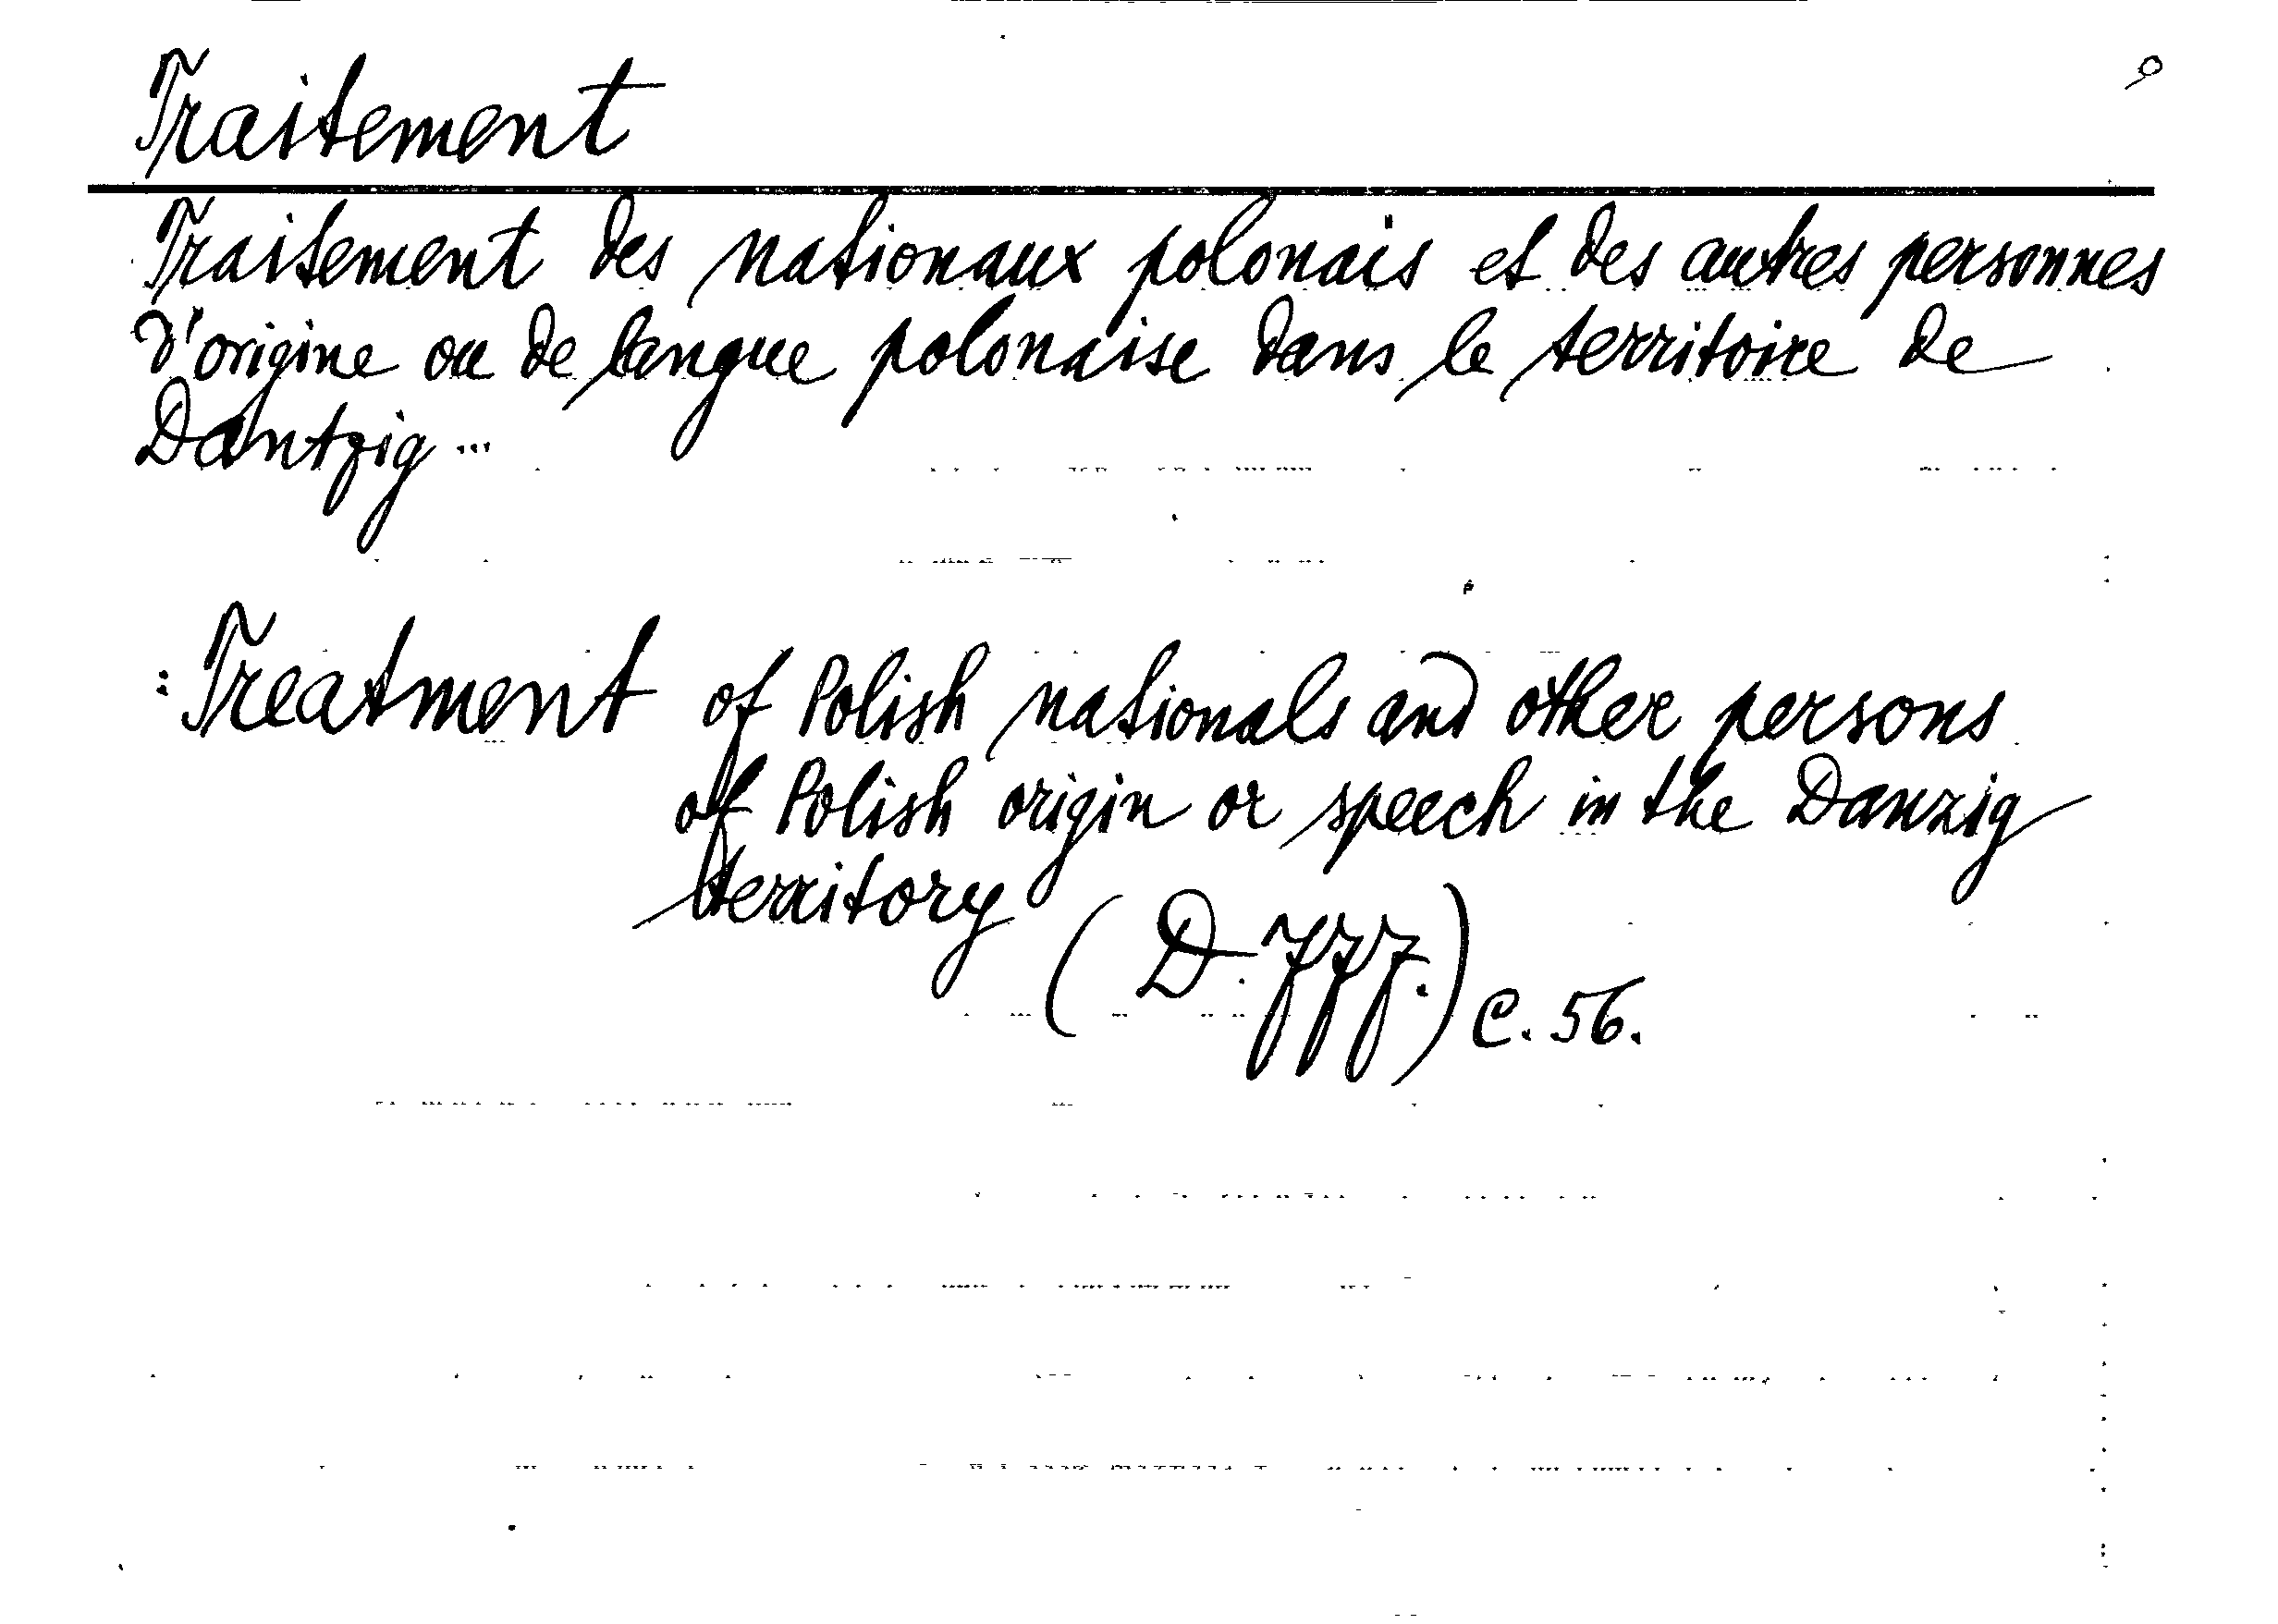 Traitement
Traitement des nationaux polonais et des autres personnes
d'origine ou de langue polonaise dans le territoire de
Dantzig ...
: Treatment of Polish nationals and other persons
of Polish origin or speech in the Danzig
territory
(D. 777.) C. 56.